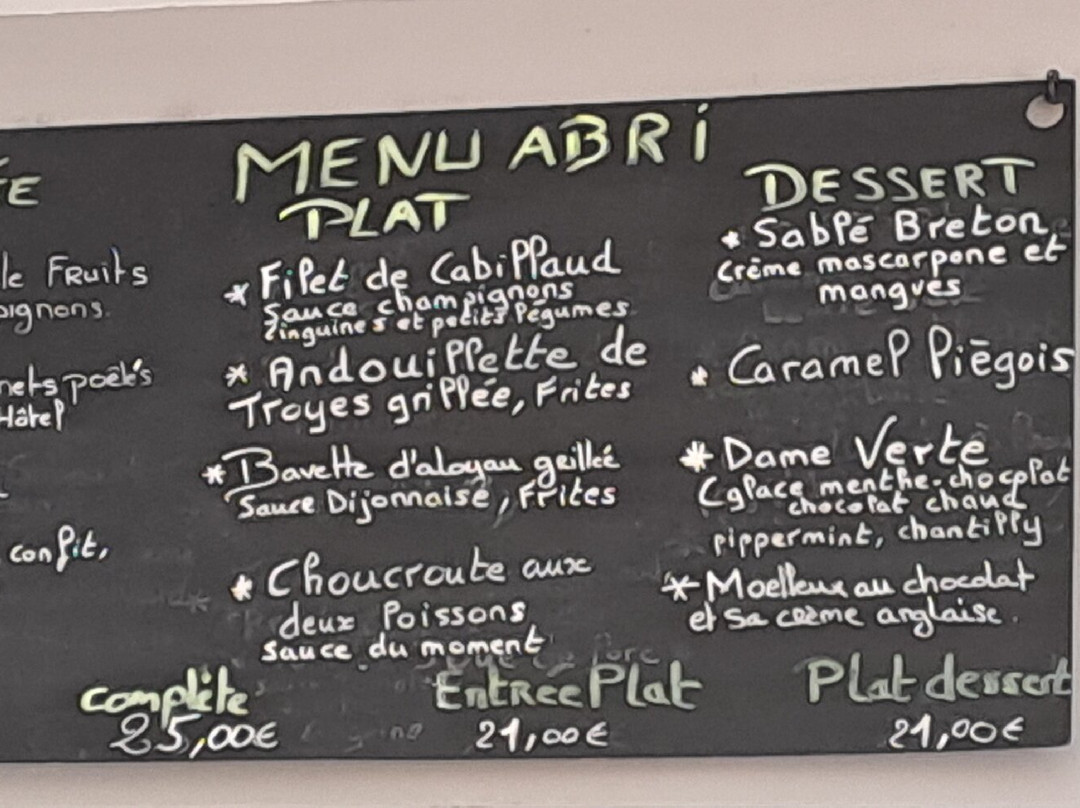 MENU ABRI
Fruits
confit,
PLAT
* Filet de Cabillaud
Sauce champignons
linguines et petits légumes
* Andouillette de
Troyes grillée, Frites
* Bavette d'aloyau grillée
Sauce Dijonnaise, Frites
* Choucroute aux
deux Poissons
sauce du moment
DESSERT
* Sablé Breton,
crème mascarpone et
mangues
* Caramel liègois
* Dame Verte
(glace menthe-chocolat
chocolat chaud
pippermint, chantilly
* Moelleux au chocolat
et sa crème anglaise.
complète
25,00€
Entrée Plat
21,00€
Plat dessert
21,00€